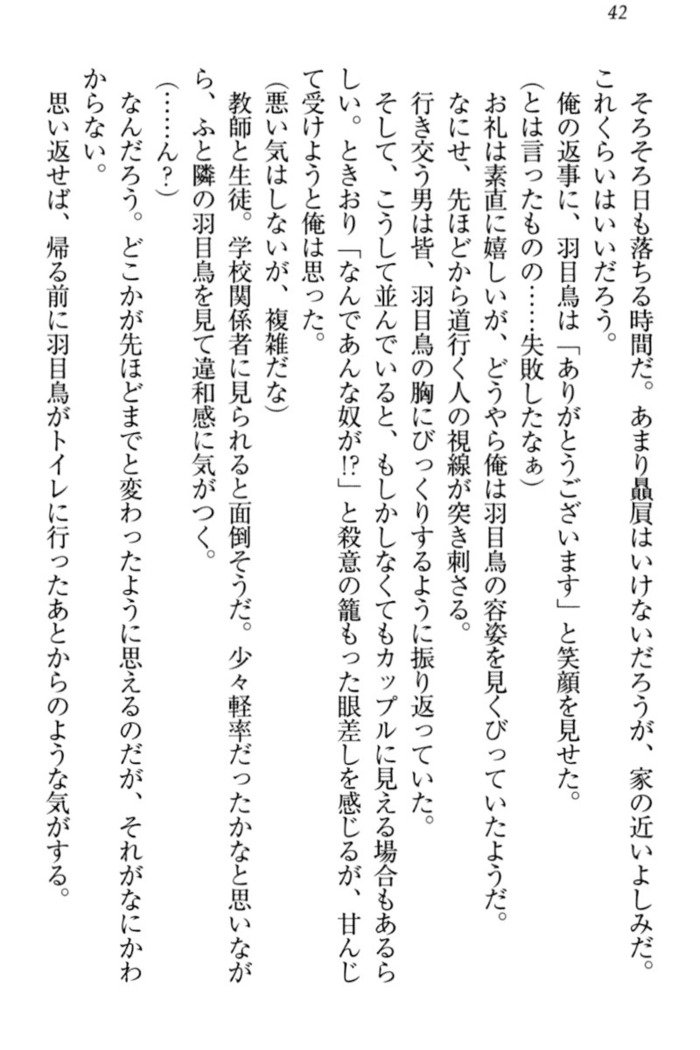 42
そろそろ日も落ちる時間だ。あまり贔屓はいけないだろうが、家の近いよしみだ。
これくらいはいいだろう。
俺の返事に、羽目鳥は「ありがとうございます」と笑顔を見せた。
(とは言ったものの……失敗したなぁ)
お礼は素直に嬉しいが、どうやら俺は羽目鳥の容姿を見くびっていたようだ。
なにせ、先ほどから道行く人の視線が突き刺さる。
行き交う男は皆、羽目鳥の胸にびっくりするように振り返っていた。
そして、こうして並んでいると、もしかしなくてもカップルに見える場合もあるら
しい。ときおり「なんであんな奴が!?」と殺意の籠もった眼差しを感じるが、甘んじ
て受けようと俺は思った。
(悪い気はしないが、複雑だな)
教師と生徒。学校関係者に見られると面倒そうだ。少々軽率だったかなと思いなが
ら、ふと隣の羽目鳥を見て違和感に気がつく。
(……ん?)
なんだろう。どこかが先ほどまでと変わったように思えるのだが、それがなにかわ
からない。
思い返せば、帰る前に羽目鳥がトイレに行ったあとからのような気がする。